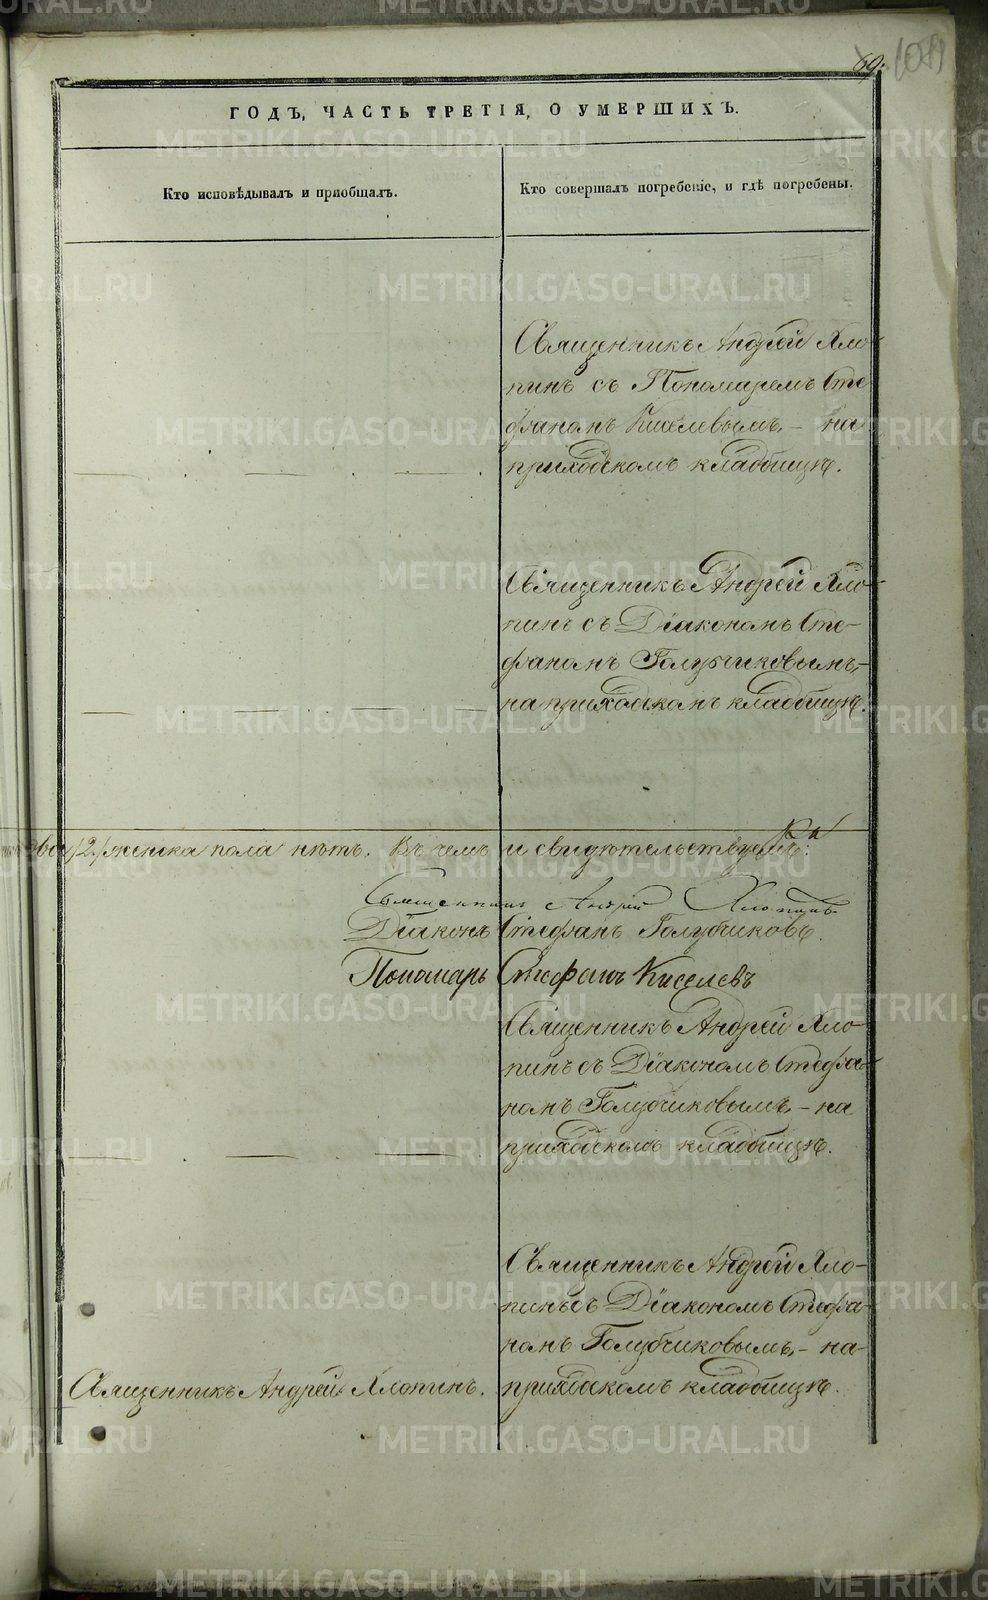 69.
ГОДЪ, ЧАСТЬ ТРЕТІЯ, О УМЕРШИХЪ.
Кто исповѣдывалъ и пріобщалъ.
Кто совершалъ погребеніе, и гдѣ погребены.
Священникъ Андрей Хло-
пинъ съ Пономаремъ Сте
фаномъ Киселевымъ, – на
приходскомъ кладбищѣ.
Священникъ Андрей Хло-
пинъ съ Діакономъ Сте-
фаномъ Голубчиковымъ, –
на приходскомъ кладбищѣ.
/2./ женска пола нѣтъ. Въ чемъ и свидѣтельствуемъ:
Священникъ Андрей Хлопинъ
Діаконъ Стефанъ Голубчиковъ.
Пономарь Стефанъ Киселевъ
Священникъ Андрей Хло-
пинъ съ Діакономъ Стефа-
номъ Голубчиковымъ, – на
приходскомъ кладбищѣ.
Священникъ Андрей Хло-
пинъ съ Діакономъ Стефа-
номъ Голубчиковымъ, – на
Священникъ Андрей Хлопинъ. приходскомъ кладбищѣ.
METRIKI.GASO-URAL.RU